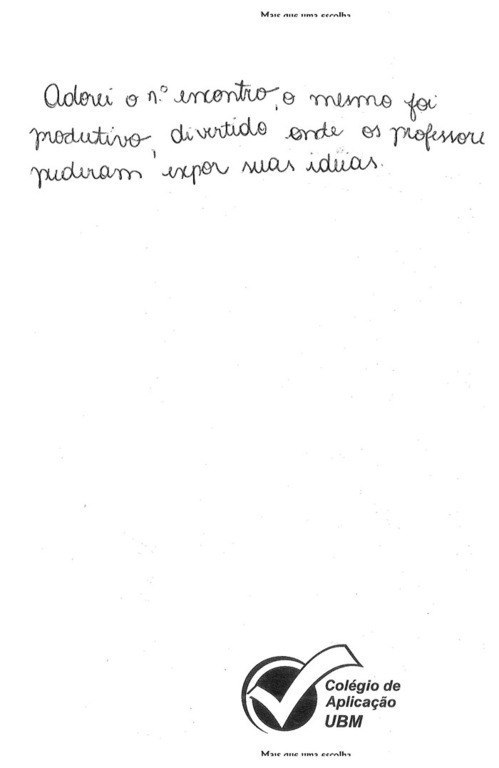 Mais que uma escolha
Adorei o n.º encontro, o mesmo foi
produtivo, divertido onde os professore
puderam expor suas idéias.
Colégio de
Aplicação
UBM
Mais que uma escolha